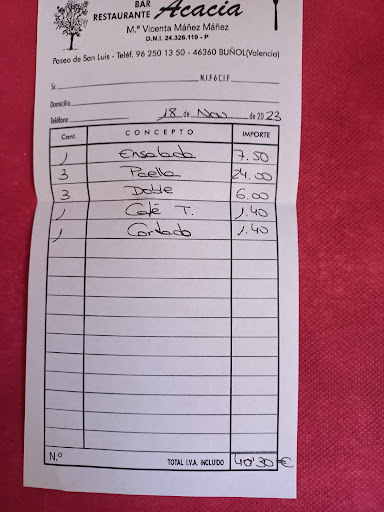 BAR
RESTAURANTE Acacia
M.ª Vicenta Máñez Máñez
D.N.I. 24.326.119 - P
Paseo de San Luis - Teléf. 96 250 13 50 - 46360 BUÑOL (Valencia)
Sr. N.I.F. ó C.I.F.
Domicilio
Teléfono 18 de Nov de 2023
Cant. CONCEPTO IMPORTE
1 Ensalada 7.50
3 Paella 24.00
3 Doble 6.00
1 Café T. 1.40
1 Cortado 1.40
N.º TOTAL I.V.A. INCLUIDO 40'30 €